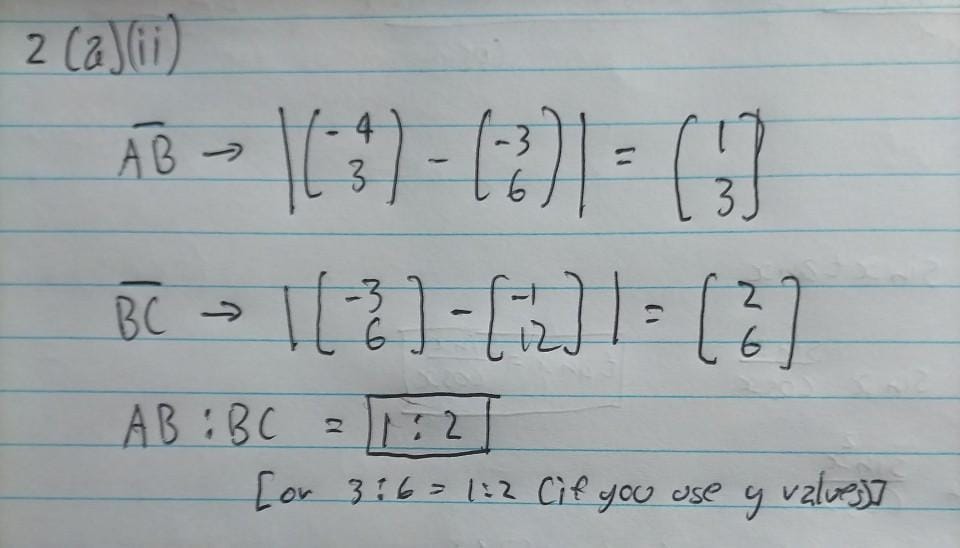 2 (a)(ii)
AB → |(-4 3) - (-3 6)| = (1 3)
BC → |[-3 6] - [-1 12]| = [2 6]
AB : BC = 1 : 2
[or 3 : 6 = 1 : 2 (if you use y values)]